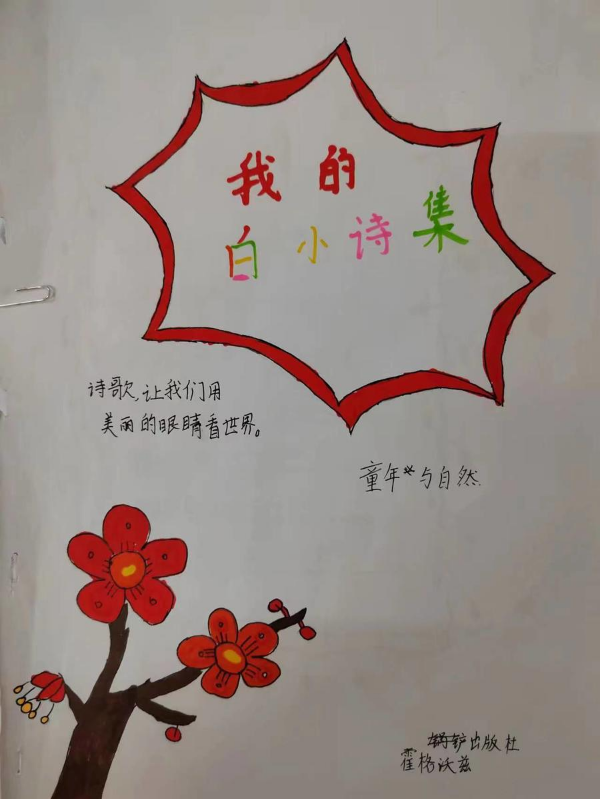 我的
白小诗集
诗歌,让我们用
美丽的眼睛看世界。
童年*与自然.
出版社
霍格沃兹